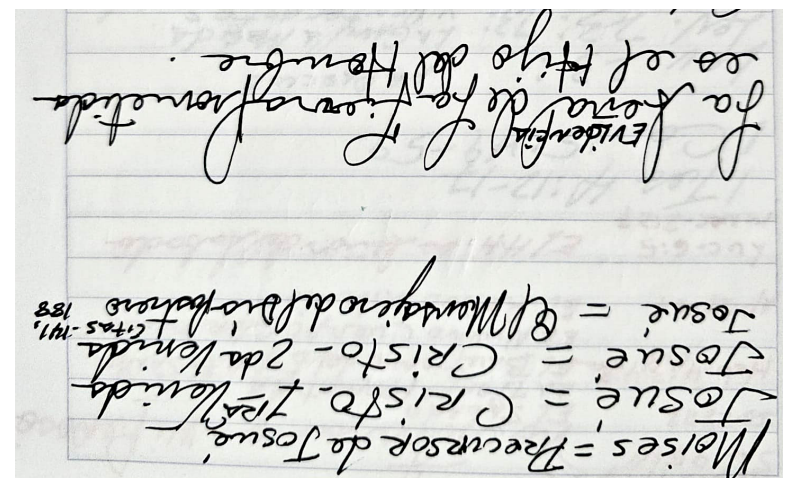 Moises = Precursor de Josué
Josué = CRisto - 1RA Venida
Josué = CRisto - 2da Venida
Josué = El Mensajero del Día Postrero
Citas - 141,
188
La seña de La Tierra Prometida
Evidencia
es el Hijo del Hombre.